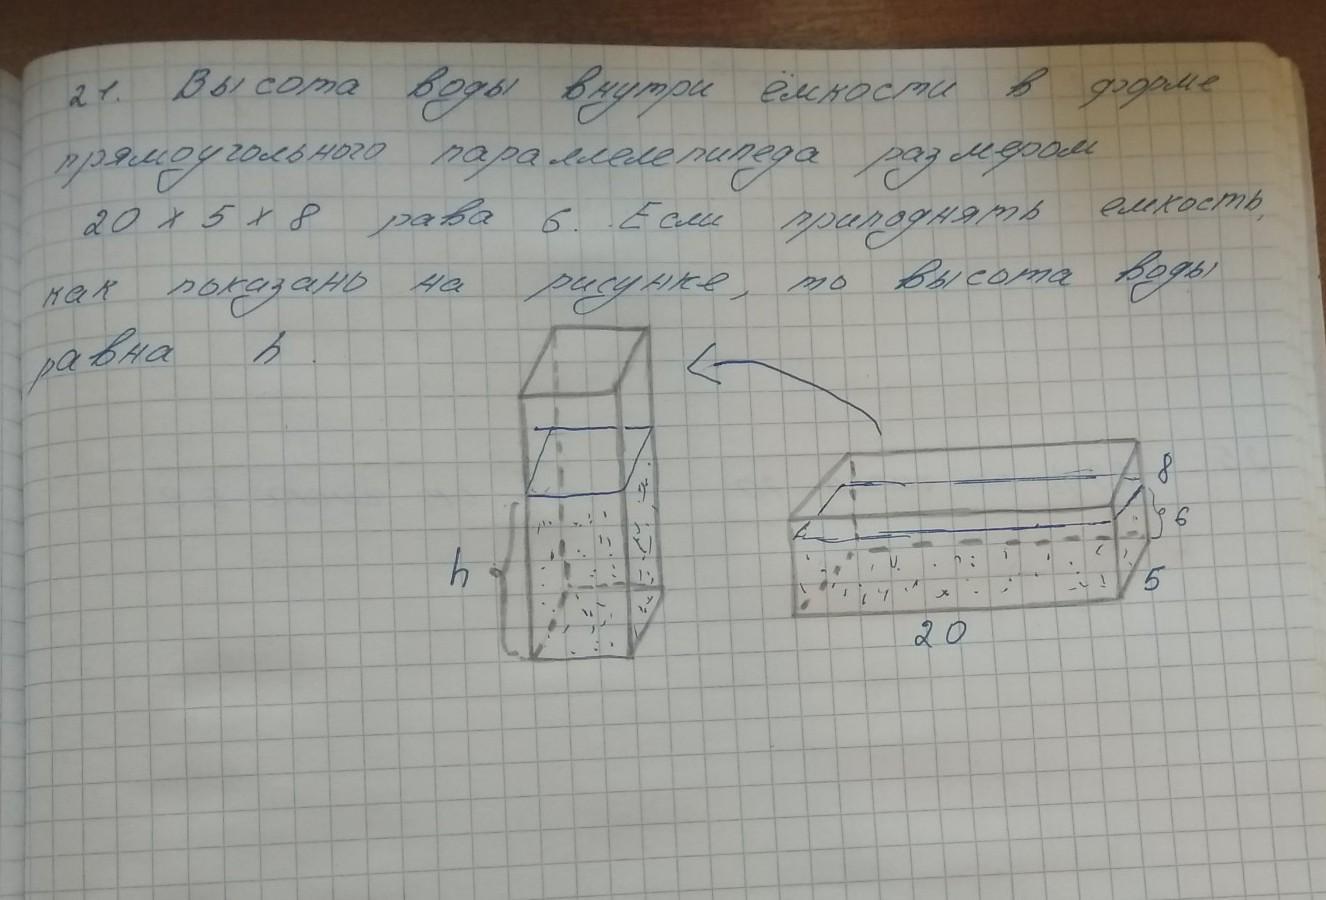 21. Высота воды внутри ёмкости в форме
прямоугольного параллелепипеда размером
20 х 5 х 8 рава 6. Если приподнять емкость,
как показано на рисунке, то высота воды
равна h.
8
6
h
5
20